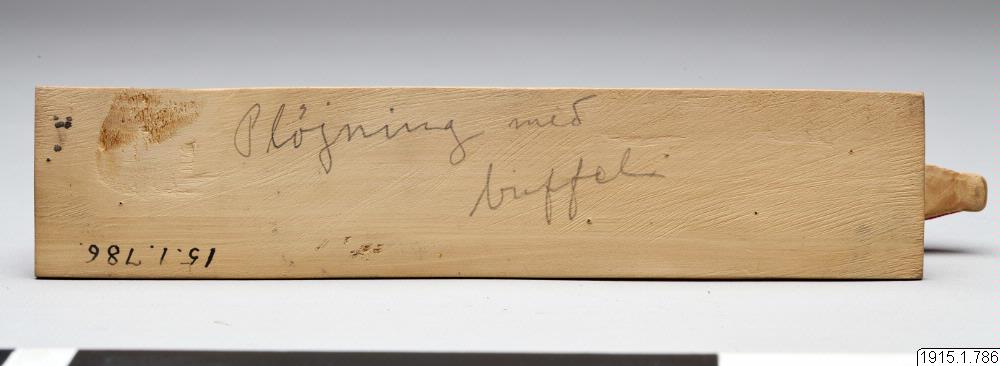 Plöjning med
buffel.
15.1.786.
1915.1.786